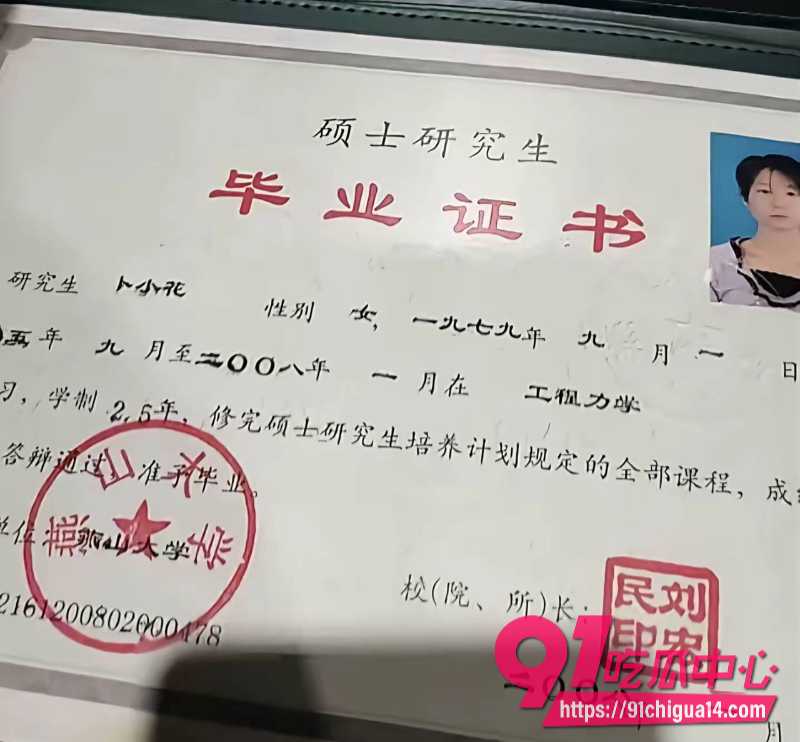 硕士研究生
毕业证书
研究生 卜小花 性别 女, 一九七九年 九 月 一 日
五年 九 月至二〇〇八年 一 月在 工程力学
习, 学制 2.5年, 修完硕士研究生培养计划规定的全部课程, 成
答辩通过, 准予毕业。
单位 燕山大学
校(院、所)长:
刘忠民印
216120080200478
二〇〇八
月
91吃瓜中心
https://91chigua14.com